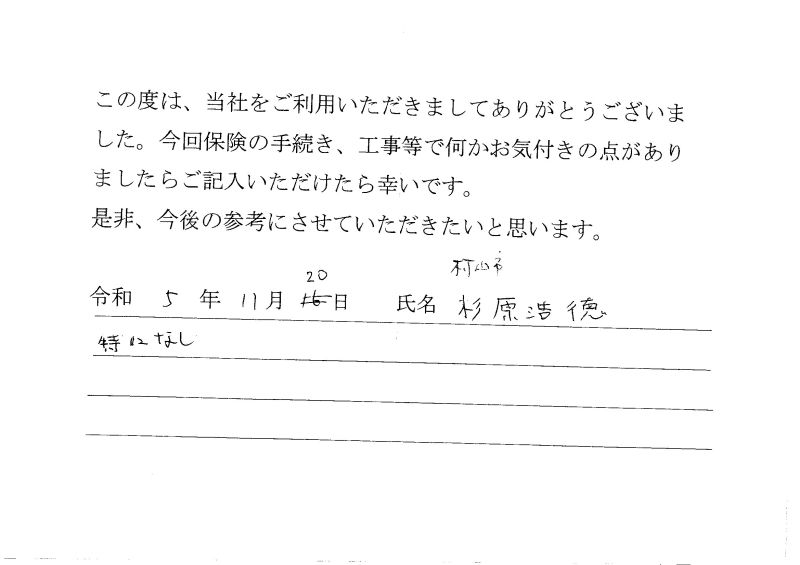 この度は、当社をご利用いただきましてありがとうございま
した。今回保険の手続き、工事等で何かお気付きの点があり
ましたらご記入いただけたら幸いです。
是非、今後の参考にさせていただきたいと思います。
村山市
20
令和 5 年 11月 16日 氏名 杉原浩徳
特になし